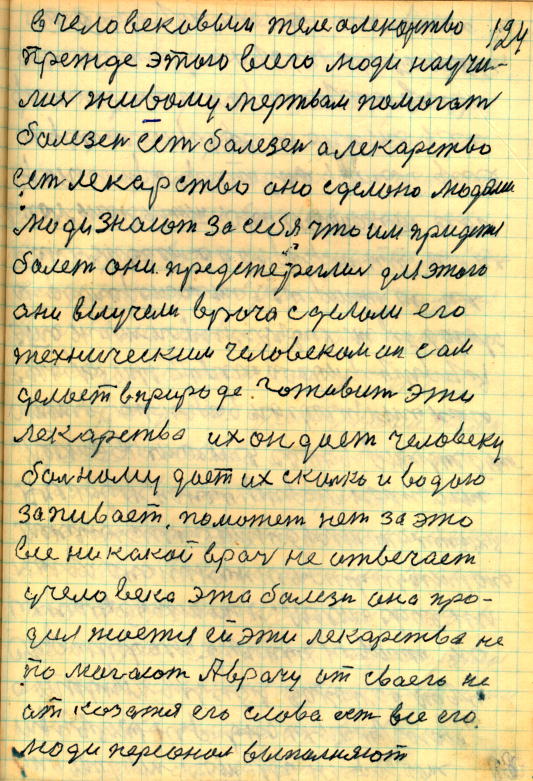 в человековым теле алекарство 124
прежде этого всего люди научи-
лис живому мертвам помогат
болезен ест болезен а лекарство
ест лекарство оно сделоно людями
люди знают за себя что им придется
болет они предстереглис для этого
ани выучели врача сделали его
техническим человеком он сам
делает в природе готовит эти
лекарства их он дает человеку
болному дает их сколко и водою
запивает, поможет нет за это
все никакой врач не отвечает
учеловека эта болезн она про-
дилжается ей эти лекарства не
помагают Аврачу от сваего не
откозатся его слова ест все его
люди персонал выполняют